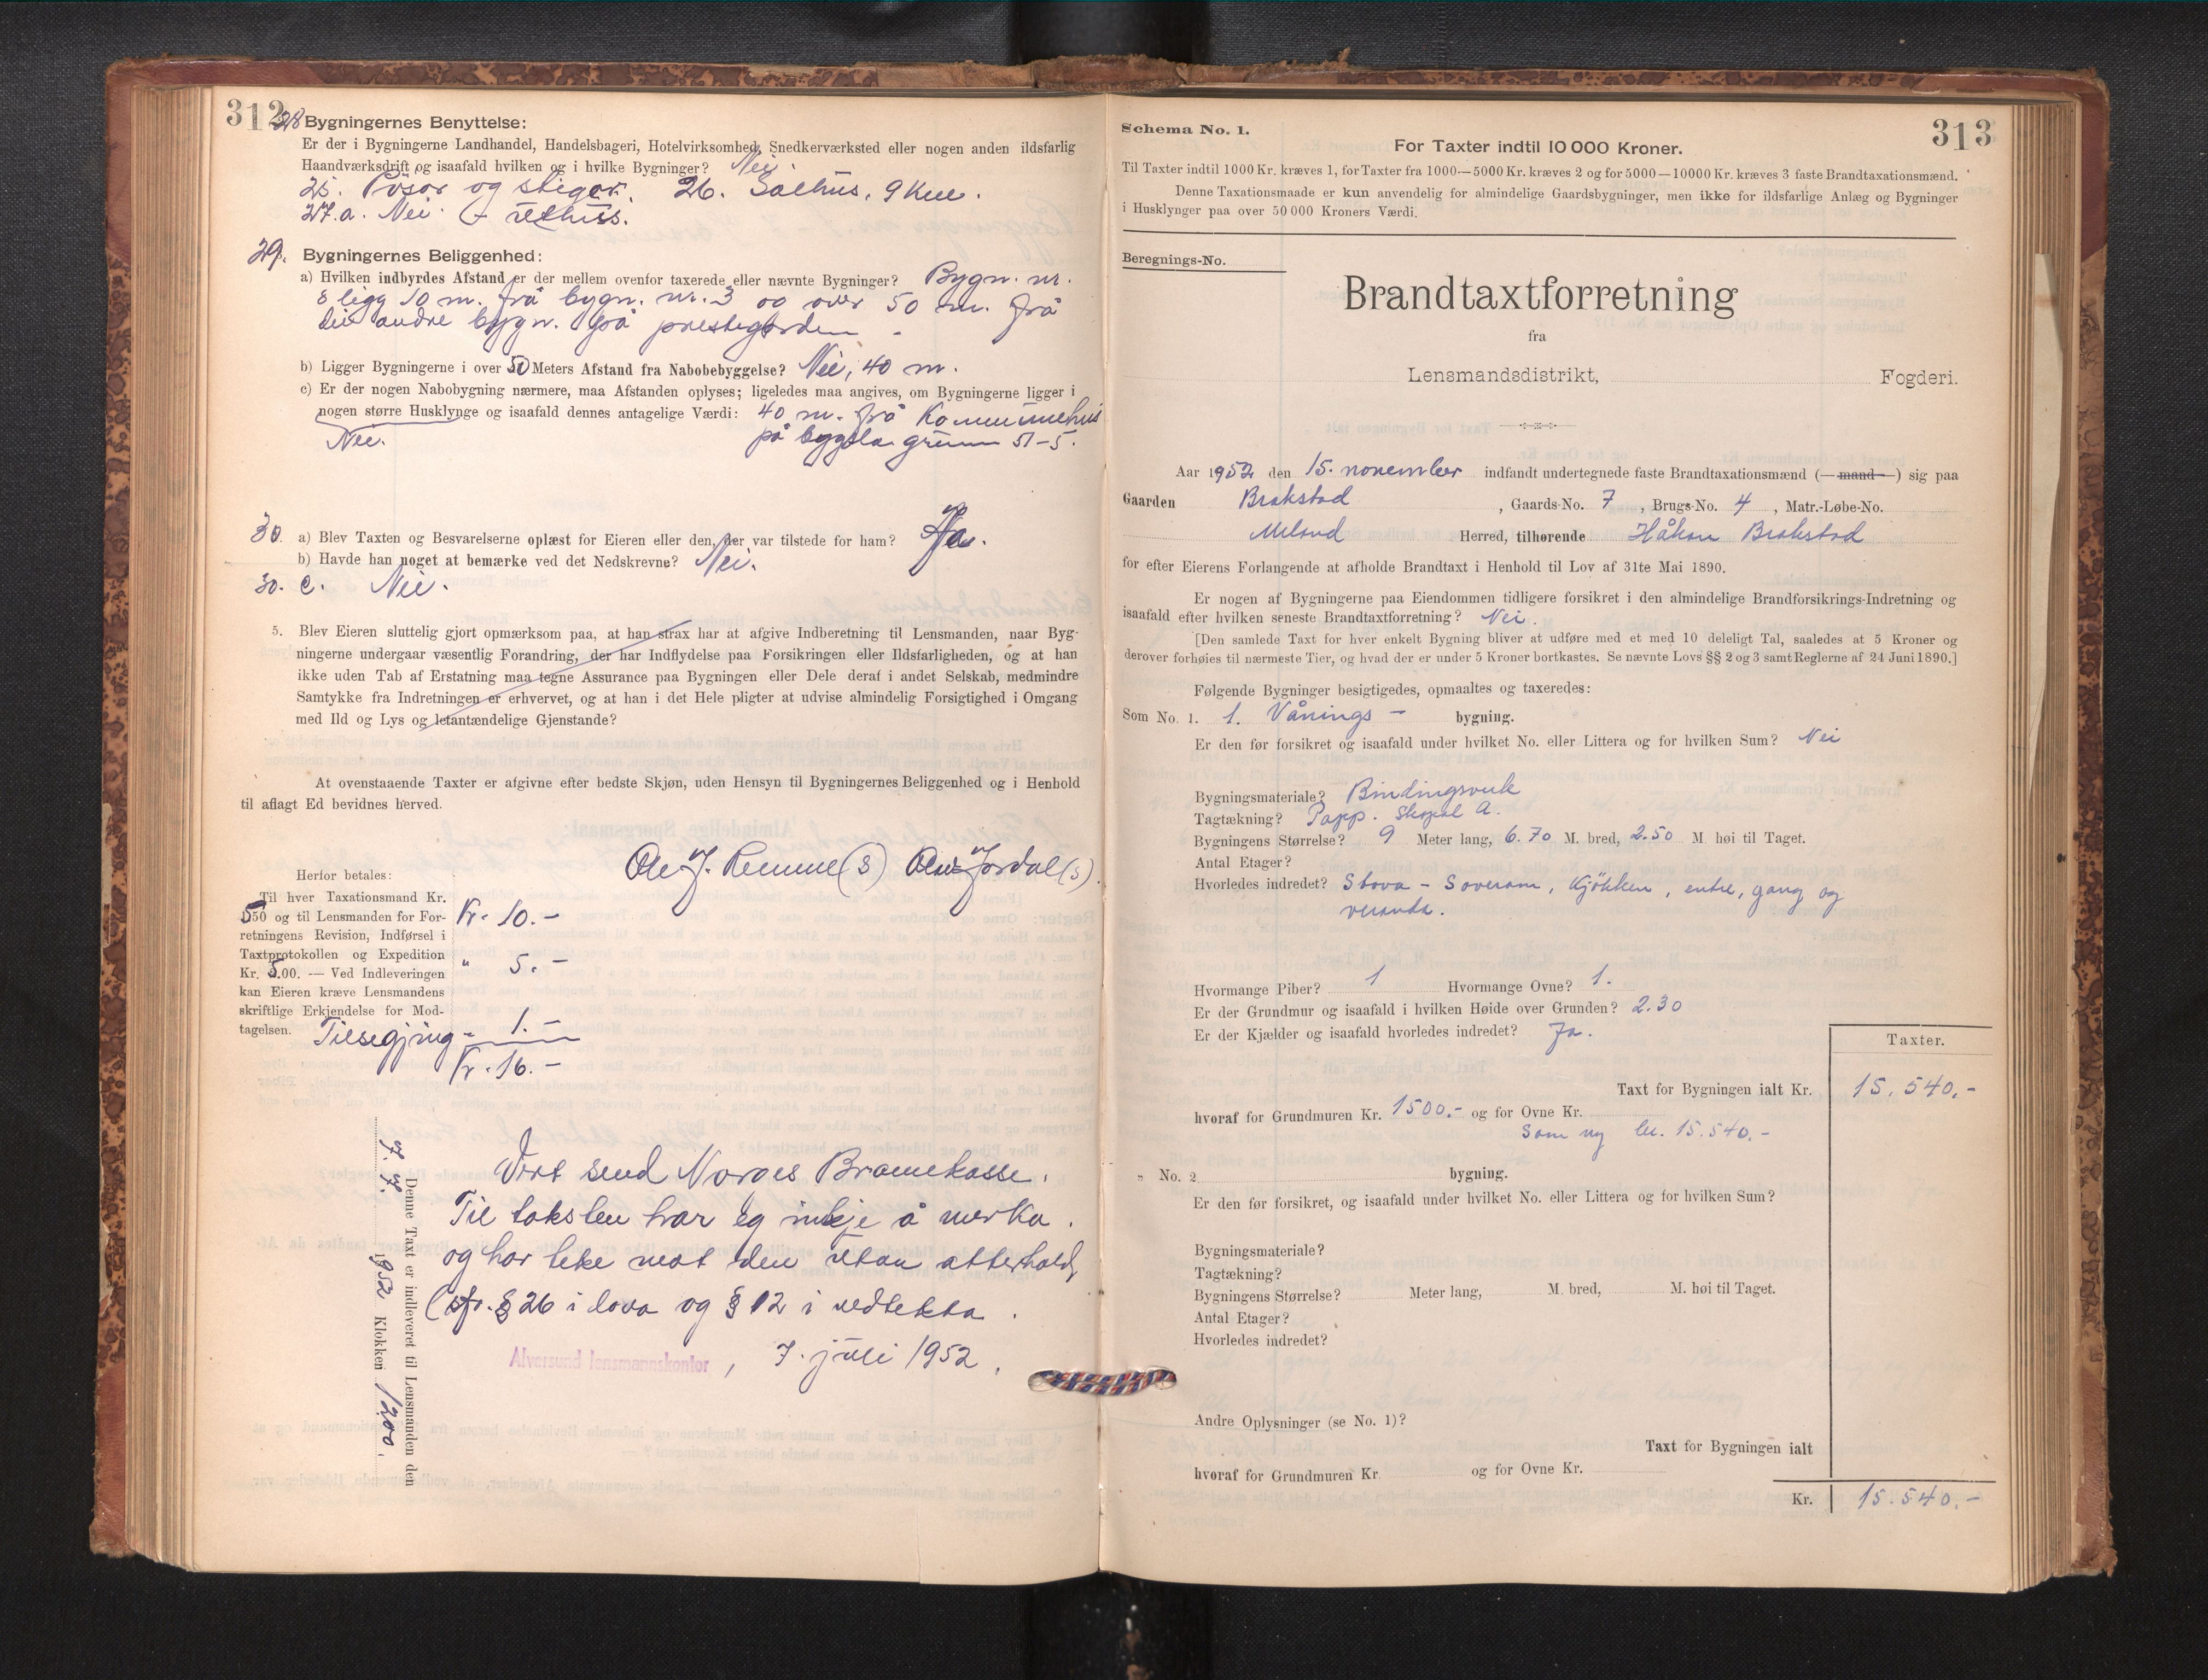 312
28 Bygningernes Benyttelse:
Er der i Bygningerne Landhandel, Handelsbageri, Hotelvirksomhed, Snedkerværksted eller nogen anden ildsfarlig
Haandværksdrift og isaafald hvilken og i hvilke Bygninger? Nei.
25. Pösar og stigar. 26. Salhus, 9 km.
27.a. Nei.
29. Bygningernes Beliggenhed:
a) Hvilken indbyrdes Afstand er der mellem ovenfor taxerede eller nævnte Bygninger? Bygn. nr.
8 ligg 10 m. frå bygn. nr. 3 og over 50 m. frå
dei andre bygn. på prestegarden -
b) Ligger Bygningerne i over 50 Meters Afstand fra Nabobebyggelse? Nei, 40 m.
c) Er der nogen Nabobygning nærmere, maa Afstanden oplyses; ligeledes maa angives, om Bygningerne ligger i
nogen større Husklynge og isaafald dennes antagelige Værdi: 40 m. frå Kommunehus
Nei. på bygsla grunn 51-5.
30. a) Blev Taxten og Besvarelserne oplæst for Eieren eller den, der var tilstede for ham? Ja.
b) Havde han noget at bemærke ved det Nedskrevne? Nei.
30. c. Nei.
5. Blev Eieren sluttelig gjort opmærksom paa, at han strax har at afgive Indberetning til Lensmanden, naar Byg-
ningerne undergaar væsentlig Forandring, der har Indflydelse paa Forsikringen eller Ildsfarligheden, og at han
ikke uden Tab af Erstatning maa tegne Assurance paa Bygningen eller Dele deraf i andet Selskab, medmindre
Samtykke fra Indretningen er erhvervet, og at han i det Hele pligter at udvise almindelig Forsigtighed i Omgang
med Ild og Lys og letantændelige Gjenstande?
At ovenstaaende Taxter er afgivne efter bedste Skjøn, uden Hensyn til Bygningernes Beliggenhed og i Henhold
til aflagt Ed bevidnes herved.
Ole J. Remme (s) Olav Jordal (s).
Herfor betales:
Til hver Taxationsmand Kr.
550 og til Lensmanden for For- Kr. 10.-
retningens Revision, Indførsel i
Taxtprotokollen og Expedition
Kr. 5.00. — Ved Indleveringen " 5.-
kan Eieren kræve Lensmandens
skriftlige Erkjendelse for Mod-
tagelsen. Tilsegjing " 1.-
Kr. 16.-
Vert send Norges Brannkasse.
Til taksten har eg inkje å merka.
og har teke mot den utan atterhald,
(sfr. § 26 i lova og § 12 i vedtekta.
Alversund lensmannskontor, 7. juli 1952.
Denne Taxt er indleveret til Lensmanden den
7. 7. 1952 Klokken 1200.
313
Schema No. 1.
For Taxter indtil 10 000 Kroner.
Til Taxter indtil 1000 Kr. kræves 1, for Taxter fra 1000—5000 Kr. kræves 2 og for 5000—10000 Kr. kræves 3 faste Brandtaxationsmænd.
Denne Taxationsmaade er kun anvendelig for almindelige Gaardsbygninger, men ikke for ildsfarlige Anlæg og Bygninger
i Husklynger paa over 50 000 Kroners Værdi.
Beregnings-No.
Brandtaxtforretning
fra
Lensmandsdistrikt, Fogderi.
Aar 1952 den 15. november indfandt undertegnede faste Brandtaxationsmænd (—mand—) sig paa
Gaarden Brakstad, Gaards-No. 7, Brugs-No. 4, Matr.-Løbe-No.
Meland Herred, tilhørende Håkon Brakstad
for efter Eierens Forlangende at afholde Brandtaxt i Henhold til Lov af 31te Mai 1890.
Er nogen af Bygningerne paa Eiendommen tidligere forsikret i den almindelige Brandforsikrings-Indretning og
isaafald efter hvilken seneste Brandtaxtforretning? Nei.
[Den samlede Taxt for hver enkelt Bygning bliver at udføre med et med 10 deleligt Tal, saaledes at 5 Kroner og
derover forhøies til nærmeste Tier, og hvad der er under 5 Kroner bortkastes. Se nævnte Lovs §§ 2 og 3 samt Reglerne af 24 Juni 1890.]
Følgende Bygninger besigtigedes, opmaaltes og taxeredes:
Som No. 1. 1. Vånings - bygning.
Er den før forsikret og isaafald under hvilket No. eller Littera og for hvilken Sum? Nei
Bygningsmateriale? Bindingsverk
Tagtækning? Papp. Skapal A.
Bygningens Størrelse? 9 Meter lang, 6.70 M. bred, 2.50 M høi til Taget.
Antal Etager?
Hvorledes indredet? Stova - Soverom, Kjøkken, entre, gang og
veranda.
Hvormange Piber? 1 Hvormange Ovne? 1.
Er der Grundmur og isaafald i hvilken Høide over Grunden? 2.30
Er der Kjælder og isaafald hvorledes indredet? Ja.
Taxter.
Taxt for Bygningen ialt Kr. 15.540.-
hvoraf for Grundmuren Kr. 1500.- og for Ovne Kr.
Som ny kr. 15.540.-
" No. 2 bygning.
Er den før forsikret, og isaafald under hvilket No. eller Littera og for hvilken Sum?
Bygningsmateriale?
Tagtækning?
Bygningens Størrelse? Meter lang, M. bred, M. høi til Taget.
Antal Etager?
Hvorledes indredet?
Andre Oplysninger (se No. 1)?
Taxt for Bygningen ialt
hvoraf for Grundmuren Kr. og for Ovne Kr.
Kr. 15.540.-